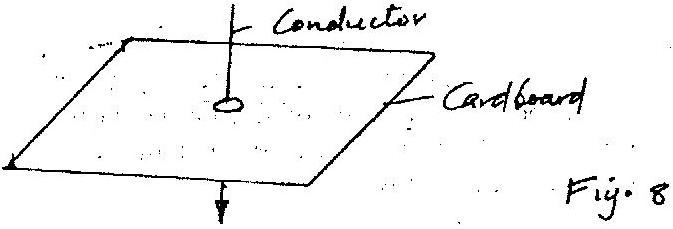 Conductor
Cardboard
Fig. 8